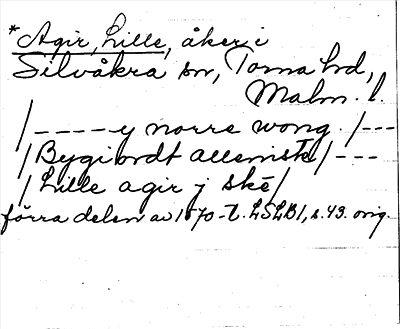 *Agir, Lille, åker i
Silvåkra sn, Torna hd,
Malm. l.
/-----y norre wong. /---
/Bygiordt allenist/---
/Lille agir j skē/
förra delen av 1570-t. LSLB1, s. 49. orig.